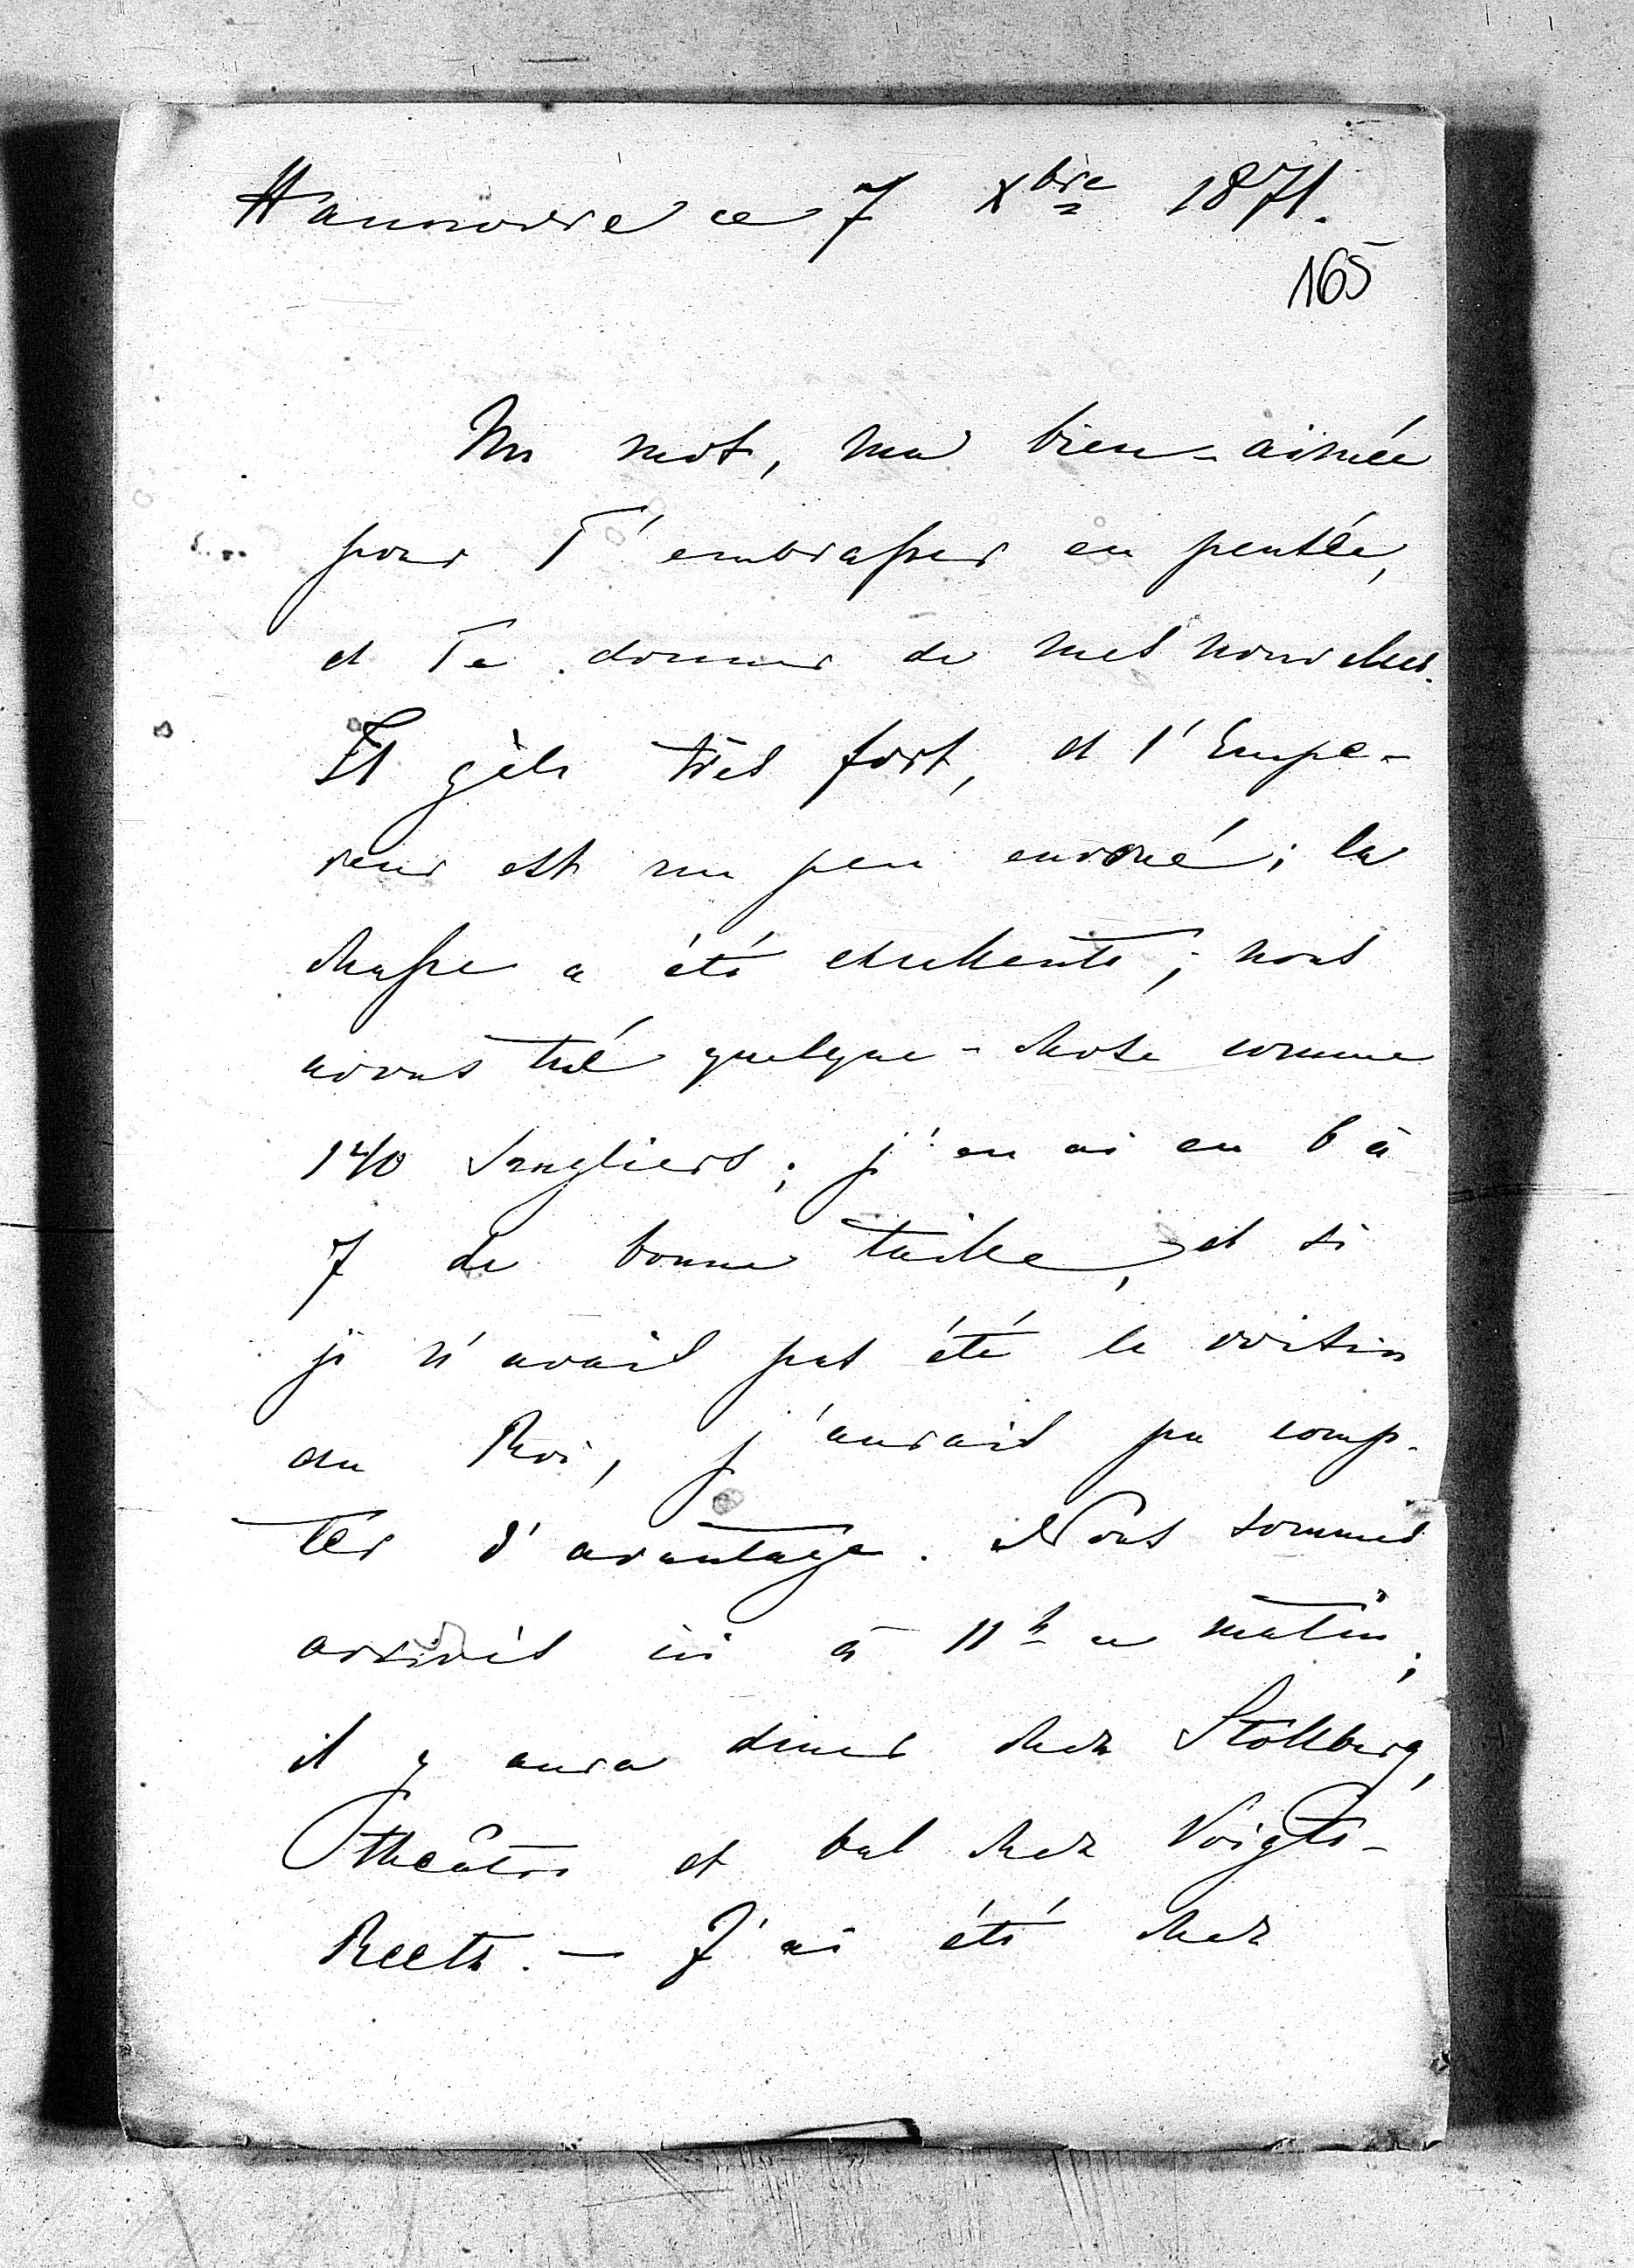 Hannovre ce 7 Xbre 1871.
165
Un mot, ma bien-aimée
pour T'embrasser en pensée,
et Te donner de mes nouvelles.
Il gèle très fort, et l'Empe-
reur est un peu enroué; la
chasse a été excellente; nous
avons tué quelque-chose comme
140 Sangliers; j'en ai eu 6 à
7 de bonne taille, et si
je n'avais pas été le voisin
du Roi, j'aurais pu comp-
ter d'avantage. Nous sommes
arrivés ici à 11h ce matin;
il y aura diner chez Stollberg,
théâtre et bal chez Voigts-
Reetz. — J'ai été chez